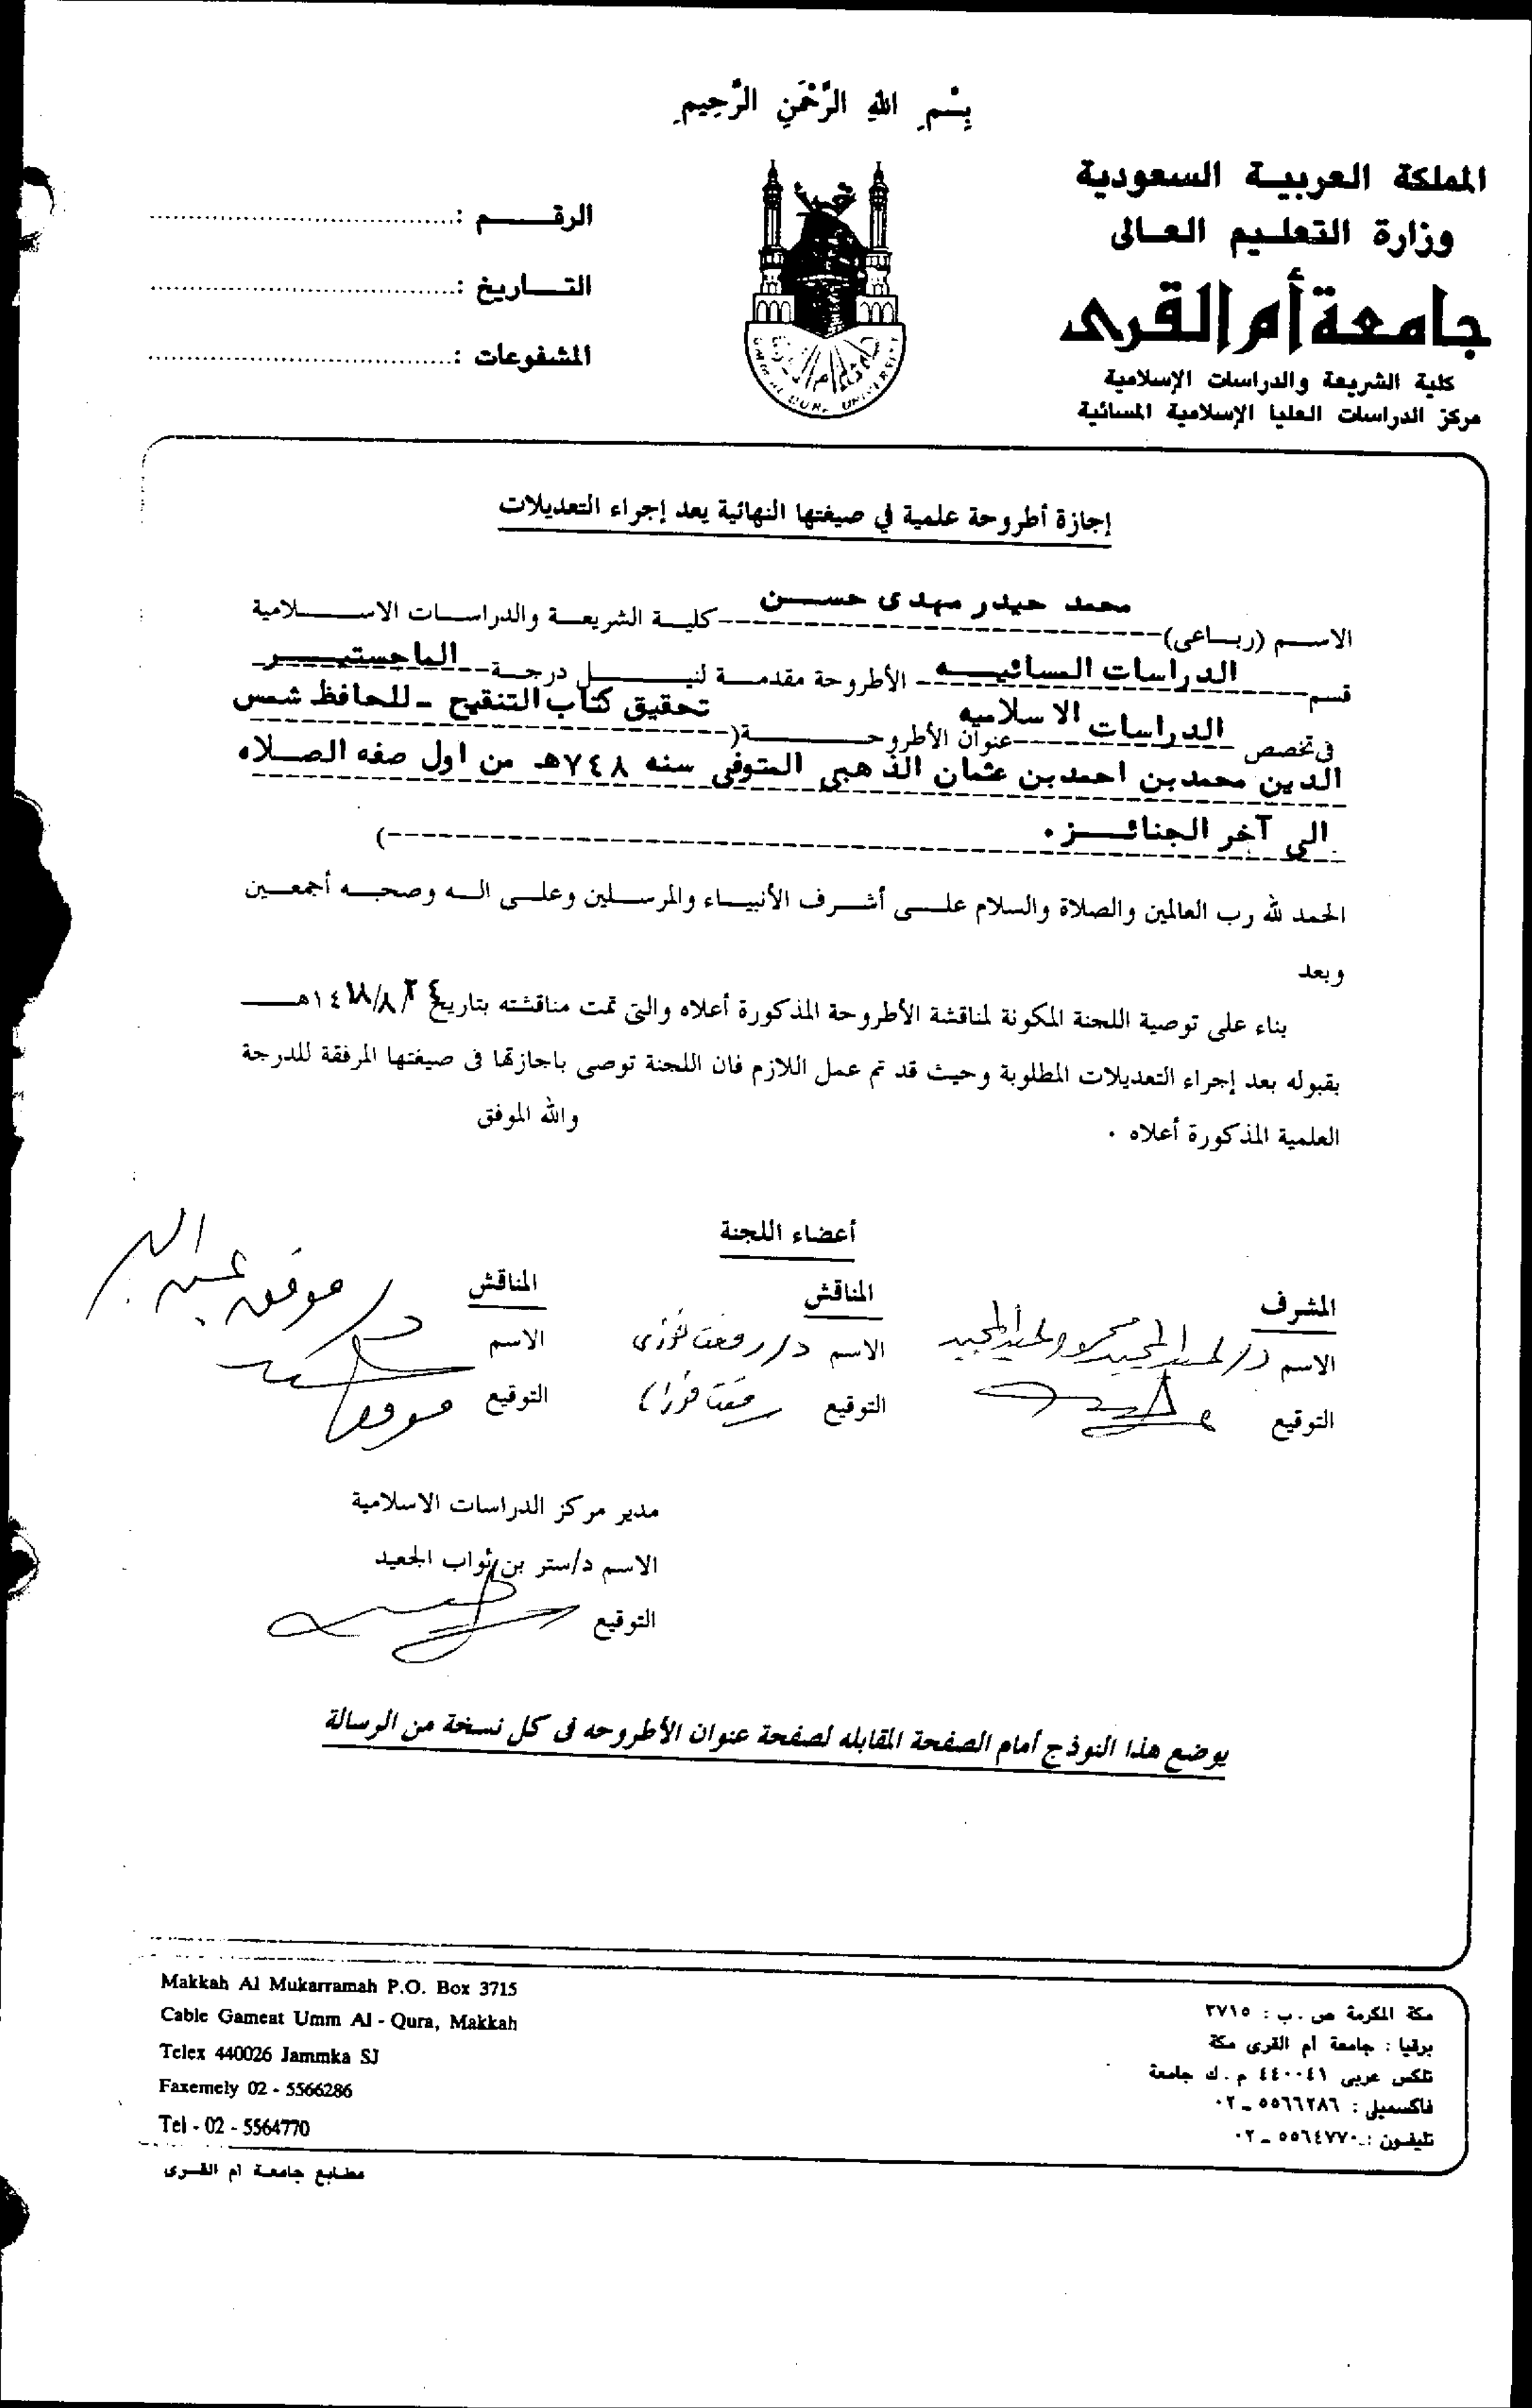 بِسْمِ اللهِ الرَّحْمَنِ الرَّحِيمِ
المملكة العربية السعودية
وزارة التعليم العالى
جامعة أم القرى
كلية الشريعة والدراسات الإسلامية
مركز الدراسات العليا الإسلامية المسائية
الرقم :
التاريخ :
المشفوعات :
إجازة أطروحة علمية في صيغتها النهائية بعد إجراء التعديلات
الاسم (رباعى) محمد حيدر مهدى حسن كلية الشريعة والدراسات الاسلامية
قسم الدراسات المسائيه الأطروحة مقدمة لنيل درجة الماجستير
فى تخصص الدراسات الاسلاميه عنوان الأطروحة (تحقيق كتاب التنقيح - للحافظ شمس
الدين محمد بن احمد بن عثمان الذهبى المتوفى سنه ٧٤٨هـ من اول صفه الصلاه
الى آخر الجنائز . )
الحمد لله رب العالمين والصلاة والسلام على أشرف الأنبياء والمرسلين وعلى اله وصحبه أجمعين
وبعد
بناء على توصية اللجنة المكونة لمناقشة الأطروحة المذكورة أعلاه والتى تمت مناقشته بتاريخ ٢٤/٨/١٤١٨هـ
بقبوله بعد إجراء التعديلات المطلوبة وحيث قد تم عمل اللازم فان اللجنة توصى باجازتها فى صيغتها المرفقة للدرجة
العلمية المذكورة أعلاه . والله الموفق
أعضاء اللجنة
المشرف المناقش المناقش
الاسم د/ عبد المجيد محمود عبد المجيد الاسم د/ رفعت فوزى الاسم د/ موفق عبد الله
التوقيع التوقيع رفعت فوزى التوقيع موفق
مدير مركز الدراسات الاسلامية
الاسم د/ستر بن ثواب الجعيد
التوقيع
يوضع هذا النوذج أمام الصفحة المقابله لصفحة عنوان الأطروحه فى كل نسخة من الرسالة
Makkah Al Mukarramah P.O. Box 3715
Cable Gameat Umm Al - Qura, Makkah
Telex 440026 Jammka SJ
Faxemely 02 - 5566286
Tel - 02 - 5564770
مكة المكرمة ص . ب : ٣٧١٥
برقيا : جامعة أم القرى مكة
تلكس عربى ٤٤٠٠٤١ م . ك جامعة
فاكسميلى : ٥٥٦٦٢٨٦ - ٠٢
تليفون : ٥٥٦٤٧٧٠ - ٠٢
مطابع جامعة أم القرى